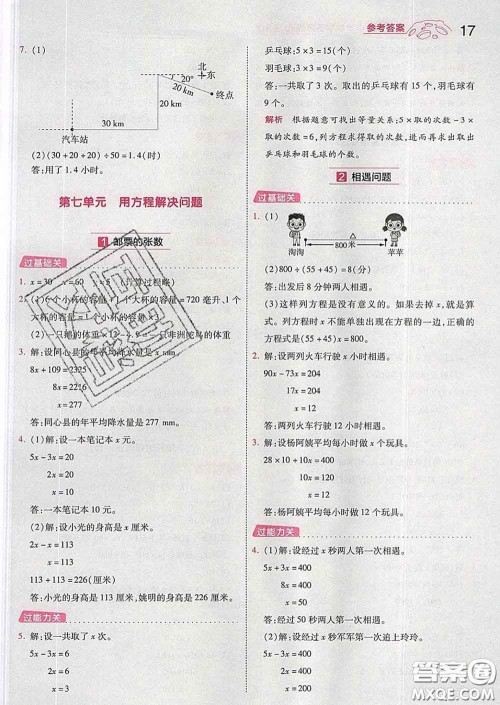 参考答案 17
7. (1)
北
东
20°
20 km
终点
20 km
30 km
汽车站
(2)(30+20+20)÷50=1.4(时)
答:用了 1.4 小时。
第七单元 用方程解决问题
1 邮票的张数
过基础关
1. x=30 x=60
2. (1)6个小杯的容量+1个大杯的容量=720 毫升,1
个大杯的容量
(2)
3. 解:设同心县的年平均降水量是 x mm。
8x+109=2325
8x=2216
x=277
答:同心县的年平均降水量是 277 mm。
4. (1)解:设一本笔记本 x 元。
5x-3x=20
2x=20
x=10
答:一本笔记本 10 元。
(2)解:设小光的身高是 x 厘米。
2x-x=113
x=113
113+113=226(厘米)
答:小光的身高是 113 厘米,姚明的身高是 226 厘米。
过能力关
5. 解:设一共取了 x 次。
5x-3x=6
2x=6
x=3
乒乓球:5×3=15(个)
羽毛球:3×3=9(个)
答:一共取了 3 次。取出的乒乓球有 15 个,羽毛球有
9 个。
解析 根据题意可找出等量关系:5×取的次数-3×
取的次数=6,列方程求得取的次数,进而再求出取出
乒乓球和羽毛球的个数。
2 相遇问题
过基础关
1. (1)
800米
淘淘 苹苹
(2)800÷(55+45)=8(分)
答:出发后 8 分钟两人相遇。
(3)这样列方程是没有意义的。如果去掉 x,就是算
式。列方程时 x 不能单独出现在方程的一边,正确的
方程式是(55+45)x=800。
2. 解:设两列火车行驶 x 小时相遇。
204÷x-90
90x-73x=204
17x=204
x=12
答:两列火车行驶 12 小时相遇。
3. 解:设杨阿姨平均每小时做 x 个玩具。
28×10+10x=400
x=12
答:杨阿姨平均每小时做 12 个玩具。
过能力关
4. (1)解:设经过 x 秒两人第一次相遇。
5x+3x=400
8x=400
x=50
答:经过 50 秒两人第一次相遇。
(2)解:设经过 x 秒军军第一次追上玲玲。
5x-3x=400
2x=400
答案圈
MXQE.COM